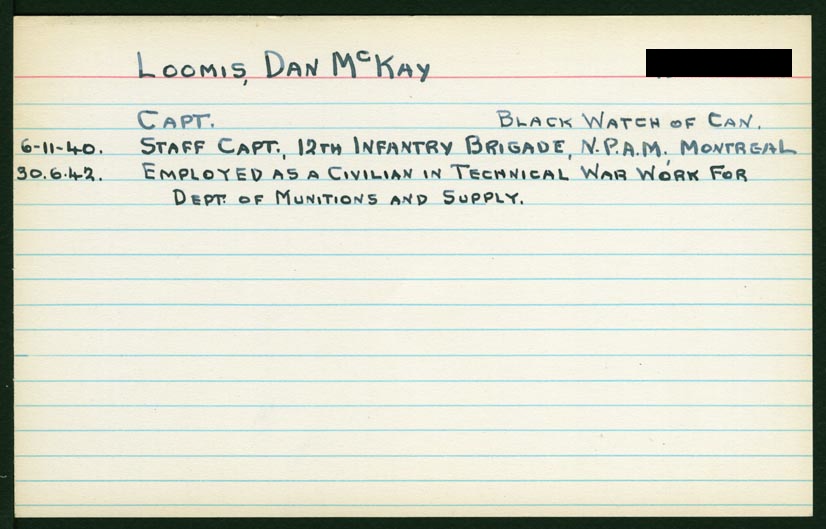 Loomis, Dan McKay
Capt. Black Watch of Can.
6-11-40. Staff Capt., 12th Infantry Brigade, N.P.A.M., Montreal
30.6.42. Employed as a Civilian in Technical War Work for
Dept. of Munitions and Supply.